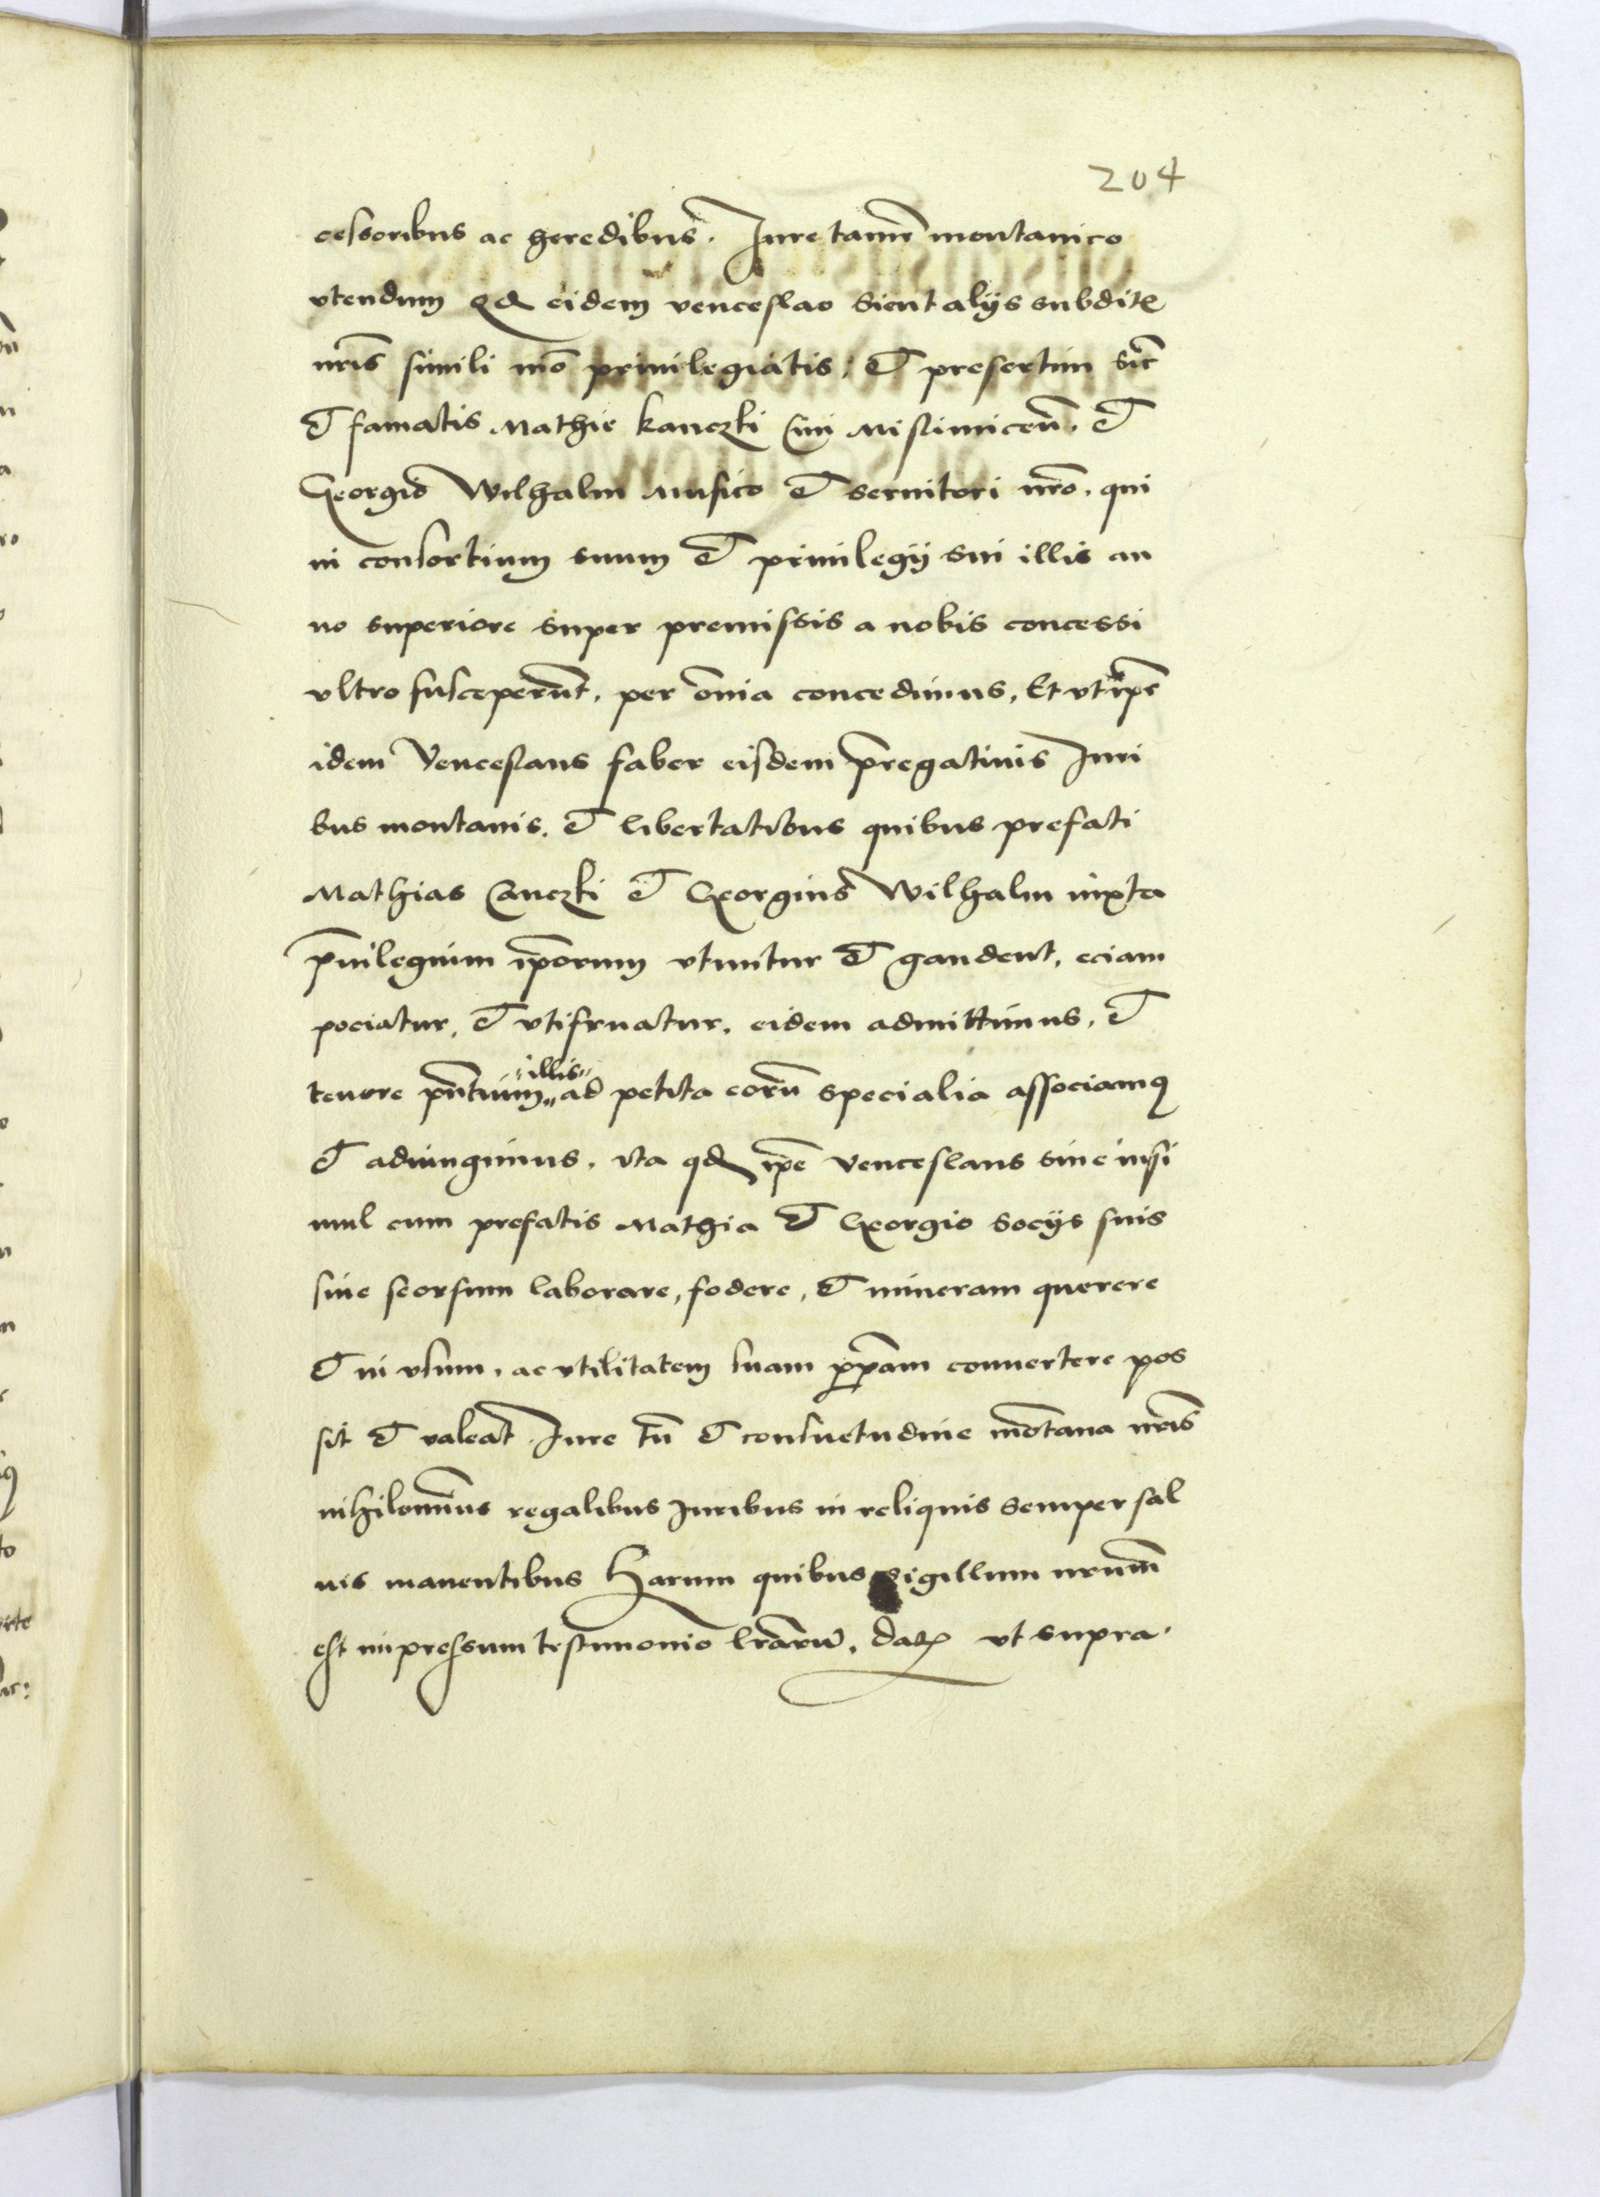 204
cessoribus ac heredibus. Jure tamē montanico
vtendum qd eidem venceslao Sicut alijs subditꝭ
nrīs simili mō priuilegiatis, et presertim sic̄
et famatis Mathie kanczki et
Georgio Wilhalm Musico et seruitori nrō. qui
in consortium suum et priuilegij sui illis an
no superiore super premissis a nobis concessi
vltro susceperūt. per om̄ia concedimus. Et vt ip̄e
idem Venceslaus faber eisdem p̄rogatiuis Juri
bus montanis. et libertatibus quibus prefati
Mathias Canczki et Georgius Wilhalm iuxta
p̄uilegium ip̄orum vtuntur et gaudent, eciam
pociatur, et vtifruatur. eidem admittimus. et
tenore pn̄tium "illis" ad petita eorū specialia associamꝰ
et adiungimus. ita qd ip̄e Venceslaus siue insi
mul cum prefatis Mathia et Georgio Socijs suis
siue seorsum laborare, fodere, et mineram querere
et in vsum. ac vtilitatem suam pp̄am conuertere pos
sit et valeat. Jure tn̄ et consuetudine mōtana nrīs
nihilominus regalibus Juribus in reliquis semper sal
uis manentibus Harum quibus sigillum nrūm
est impressum testimonio lrārū. datꝭ vt supra.